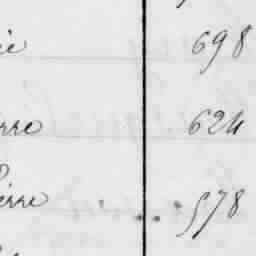 ie 698
erre 624
Pierre 578